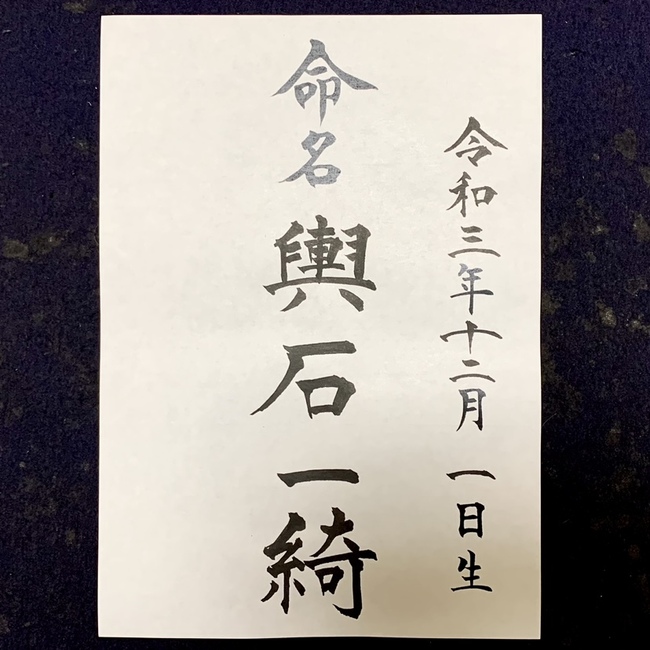 令和三年十二月一日生
命名 輿石一綺